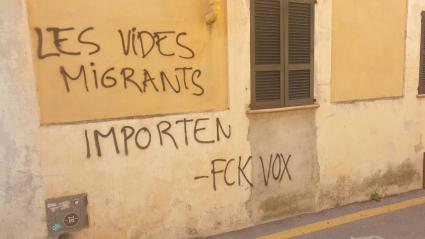 LES VIDES
MIGRANTS
IMPORTEN
-FCK VOX